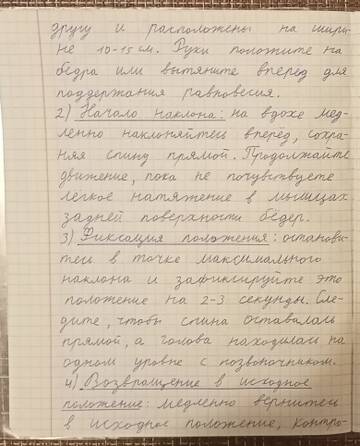 другу и расположены на шири-
не 10-15 см. Руки положите на
бедра или вытяните вперед для
поддержания равновесия.
2) Начало наклона: на вдохе мед-
ленно наклоняйтесь вперед, сохра-
няя спину прямой. Продолжайте
движение, пока не почувствуете
легкое натяжение в мышцах
задней поверхности бедер.
3) Фиксация положения: останови-
тесь в точке максимального
наклона и зафиксируйте это
положение на 2-3 секунды. Сле-
дите, чтобы спина оставалась
прямой, а голова находилась на
одном уровне с позвоночником.
4) Возвращение в исходное
положение: медленно вернитесь
в исходное положение, контро-